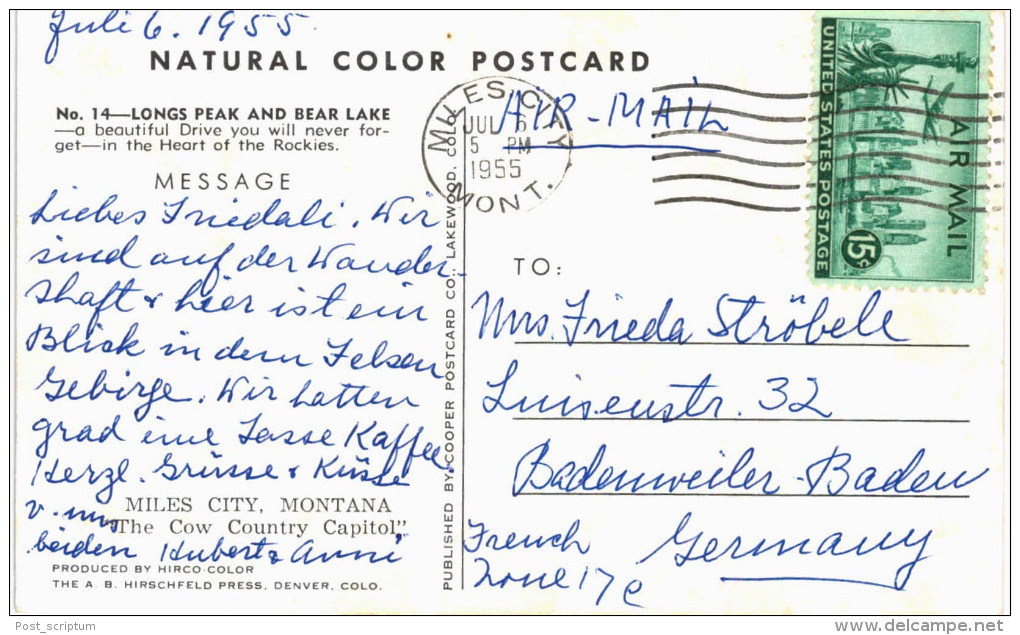 Juli 6. 1955
NATURAL COLOR POSTCARD
No. 14—LONGS PEAK AND BEAR LAKE
—a beautiful Drive you will never for-
get—in the Heart of the Rockies.
MESSAGE
Liebes Friedali. Wir
sind auf der Wander-
shaft & hier ist ein
Blick in dem Felsen
Gebirge. Wir hatten
grad eine Tasse Kaffee.
Herzl. Grüsse & Küsse
v. uns
MILES CITY, MONTANA
"The Cow Country Capitol"
beiden Hubert & Anni
PRODUCED BY HIRCO-COLOR
THE A. B. HIRSCHFELD PRESS, DENVER, COLO.
PUBLISHED BY COOPER POSTCARD CO., LAKEWOOD, COLO.
MILES CITY
JUL 6
5 PM
1955
MONT.
AIR-MAIL
UNITED STATES POSTAGE
AIR MAIL
15¢
TO:
Mrs. Frieda Ströbele
Luisenstr. 32
Badenweiler-Baden
Germany
French
Zone 17c
Post_scriptum
www.delcampe.net